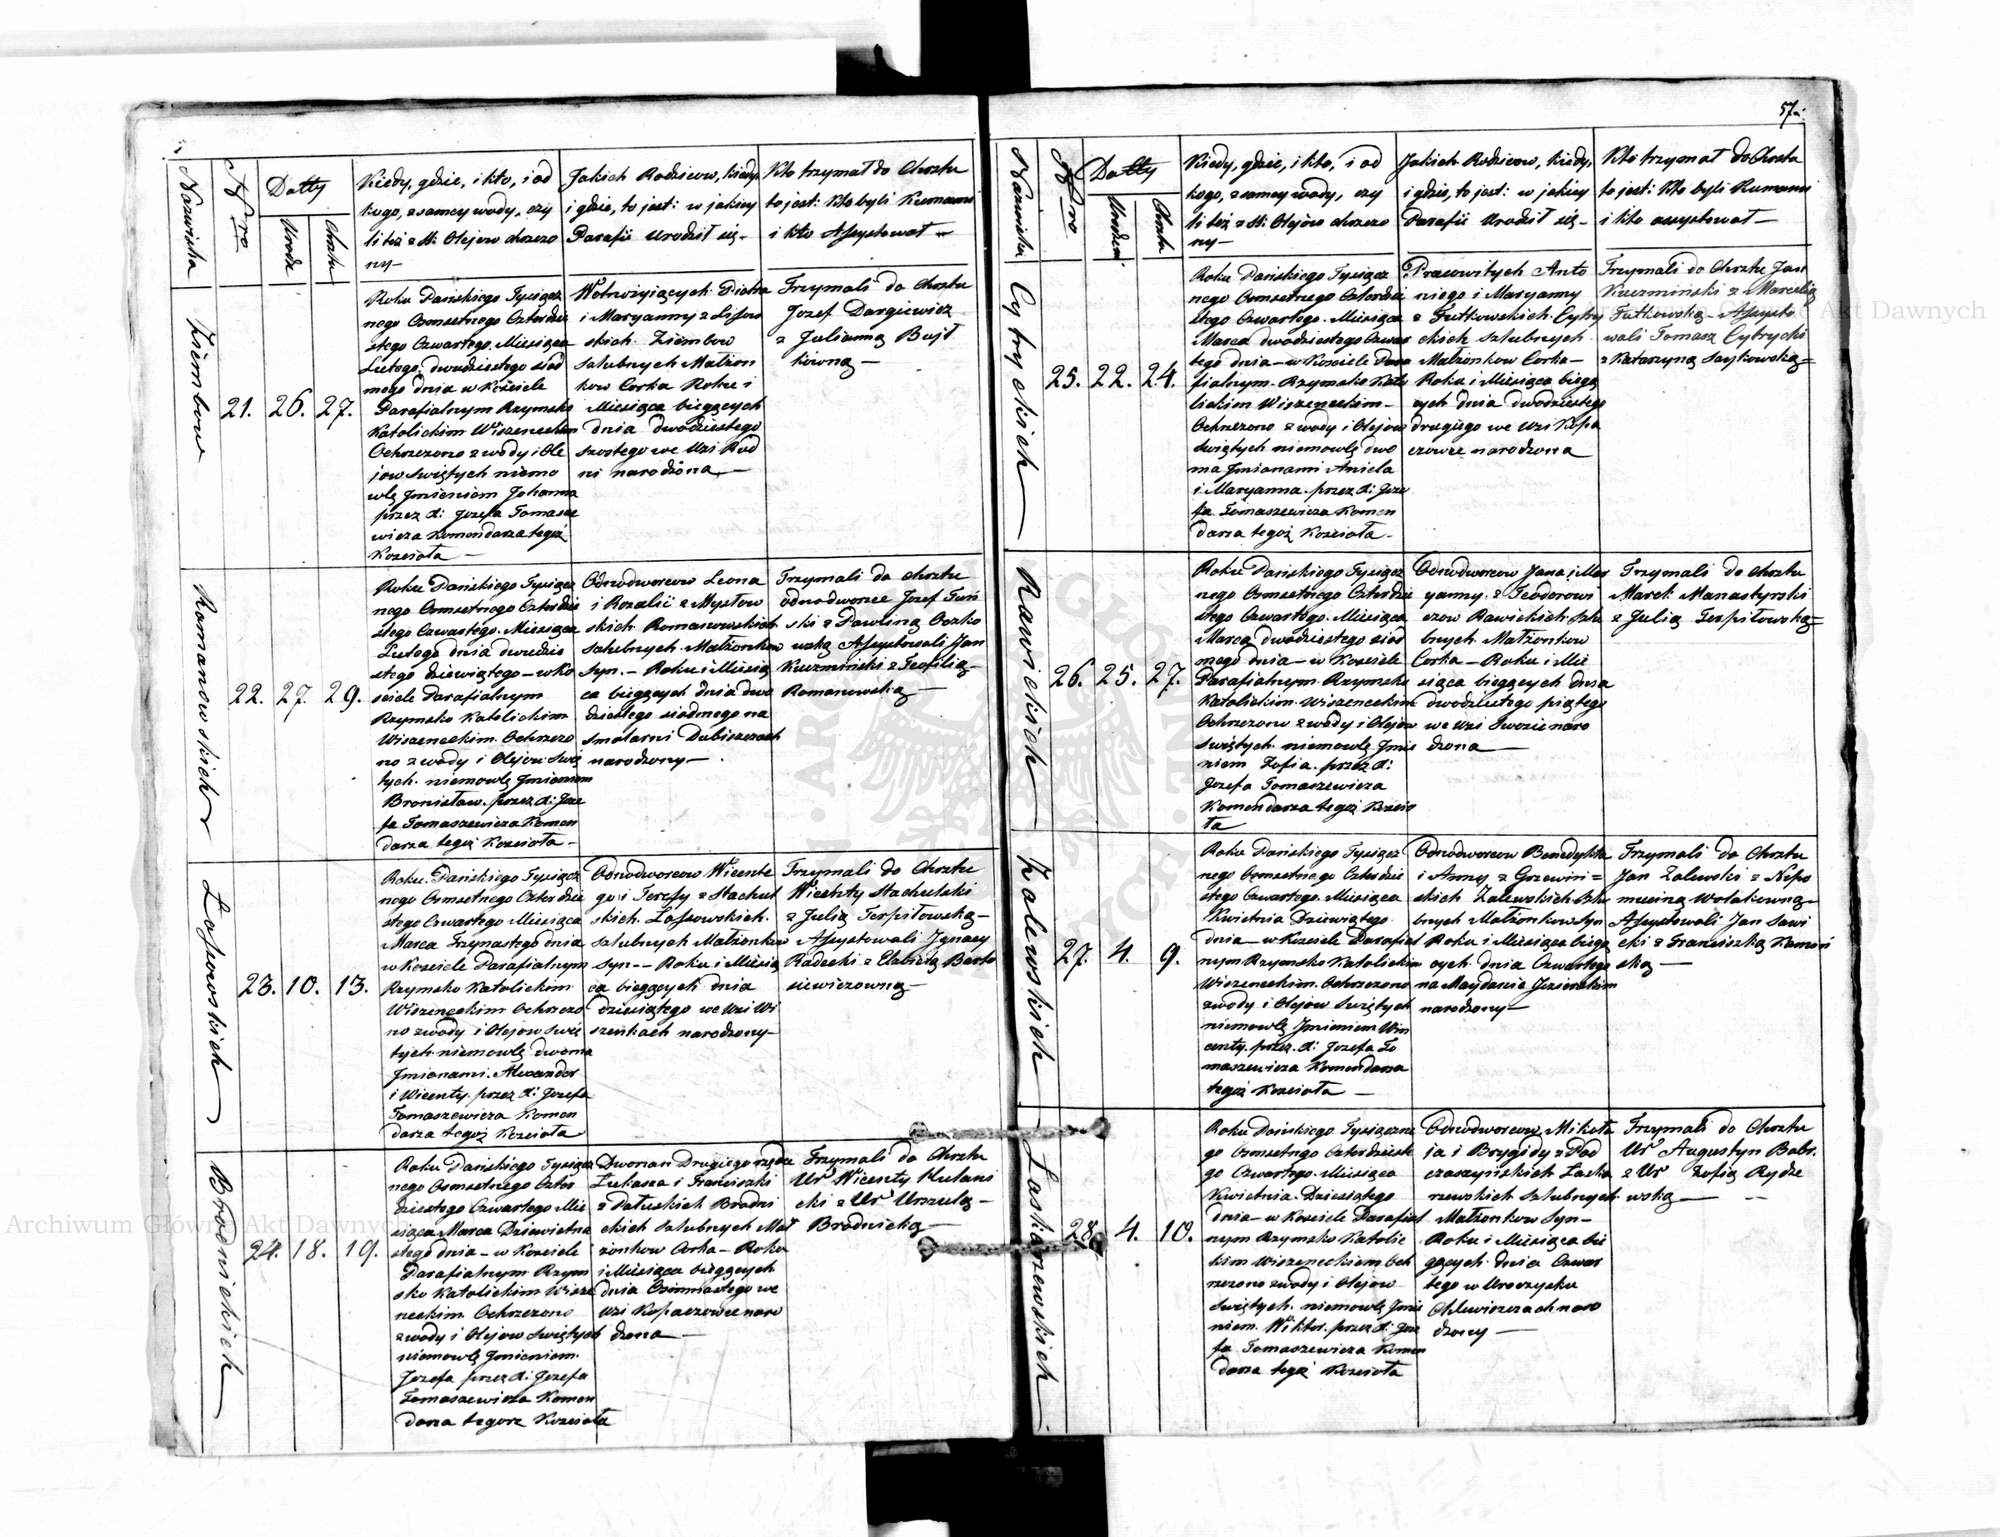 57a.
Nazwiska
Nro
Datty
Urodz
Chrztu
Kiedy, gdzie, i kto, i od
kogo, z samey wody, czy
li też z SS. Olejow chrzczo
ny—
Jakich Rodzicow, kiedy
i gdzie, to jest: w jakiey
Parafii urodził się.
Kto trzymał do Chrztu
to jest: Kto byli Kumami
i kto Assystował
Ziembow
21. 26. 27.
Roku Pańskiego Tysiącz
nego Osmsetnego Czterdzie
stego Czwartego Miesiąca
Lutego, dwudziestego siod
mego dnia w Kościele
Parafialnym Rzymsko
Katolickim Wiszeneckim
Ochrzczono z wody i Ole
jow Swiętych niemo
wlę Jmieniem Johanna
przez X: Jozefa Tomasze
wicza Komendarza tegoż
Kościoła —
Wolnożyiących Piotra
i Maryanny z Lisow
skich Ziembow
szlubnych Małżon
kow Corka Roku i
Miesiąca bieżących
dnia dwódziestego
szostego we Wsi Rud
ni narodzona —
Trzymali do Chrztu
Jozef Dargiewicz
z Julianną Bujł
kówną —
Romanowskich
22. 27. 29.
Roku Pańskiego Tysiącz
nego Osmsetnego Czterdzie
stego Czwartego. Miesiąca
Lutego dnia dwudzie
stego dziewiątego — w Ko
ściele Parafialnym
Rzymsko Katolickim
Wiszeneckim. Ochrzczo
no z wody i Olejow Swię
tych. niemowlę Jmieniem
Bronisław. przez X: Joze
fa Tomaszewicza Komen
darza tegoż Kościoła —
Odnodworcow Leona
i Rozalii z Mysłow
skich Romanowskich
szlubnych Małżonkow
Syn. — Roku i Miesią
ca bieżących dnia dwu
dziestego siodmego na
Smolarni Dubiszczach
narodzony —
Trzymali do Chrztu
odnodworce Jozef Tuń
ski z Pawliną Oczko
wską Assystowali Jan
Kuczmiński z Teofilią
Romanowską —
Lossowskich
23. 10. 13.
Roku Pańskiego Tysiącz
nego Osmsetnego Czterdzie
stego Czwartego Miesiąca
Marca Trzynastego dnia
w Kościele Parafialnym
Rzymsko Katolickim
Wiszeneckim Ochrzczo
no z wody i Olejow Swię
tych niemowlę dwoma
Jmionami. Alexander
i Wicenty. przez X: Jozefa
Tomaszewicza Komen
darza tegoż Kościoła
Odnodworcow Wicente
go i Teressy z Stachul
skich. Lossowskich.
szlubnych Małżonkow
Syn — Roku i Miesią
ca bieżących dnia
Dziesiątego we Wsi Wi
szenkach narodzony —
Trzymali do Chrztu
Wicenty Stachulski
z Julią Terpiłowską —
Assystowali Jgnacy
Radecki z Elżbietą Barto
siewiczowną —
Brodnickich
24. 18. 19.
Roku Pańskiego Tysiącz
nego Osmsetnego Czter
dziestego Czwartego Mie
siąca Marca Dziewietna
stego dnia — w Kościele
Parafialnym Rzym
sko Katolickim Wisze
neckim. Ochrzczono
z wody i Olejow Swiętych
niemowlę Jmieniem.
Jozefa przez X: Jozefa
Tomaszewicza Komen
darza tegorz Kościoła
Dworian Drugiego rzędu
Łukasza i Franciszki
z Pałuskich Brodni
ckich szlubnych Mał
żonkow Corka — Roku
i Miesiąca bieżących
dnia Osimnastego we
Wsi Kopaczowce naro
dzona —
Trzymali do Chrztu
Ur Wicenty Kulani
cki z Ur Urszulą —
Brodnicką —
Nazwiska
Nro
Datty
Urodzen
Chrztu
Kiedy, gdzie, i kto, i od
kogo, z samey wody, czy
li też z SS: Olejów chrzczo
ny —
Jakich Rodzicow, kiedy,
i gdzie, to jest: w jakiey
Parafii Urodził się —
Kto trzymał do Chrztu
to jest: Kto byli Kumami
i kto assystował —
Cytryckich
25. 22. 24.
Roku Pańskiego Tysiącz
nego Osmsetnego Czterdzie
stego Czwartego. Miesiąca
Marca dwodziestego Czwar
tego dnia — w Kościele Para
fialnym. Rzymsko Kato
lickim Wiszeneckim —
Ochrzczono z wody i Olejow
swiętych niemowlę dwo
ma Jmionami Aniela
i Maryanna. przez X: Joze
fa Tomaszewicza Komen
darza tegoż Kościoła —
Pracowitych Anto
niego i Maryanny
z Tutkowskich Cytry
ckich szlubnych
Małżonkow Corka —
Roku i Miesiąca bieżą
cych dnia dwodziestego
drugiego we Wsi Kopa
czowce narodzona
Trzymali do Chrztu Jan
Kuczmiński z Marcelią
Tutkowską — Assysto
wali Tomasz Cytrycki
z Katarzyną Saykowską
Rawickich
26. 25. 27.
Roku Pańskiego Tysiącz
nego Osmsetnego Czterdzie
stego Czwartego. Miesiąca
Marca dwodziestego siod
mego dnia — w Kościele
Parafialnym. Rzymsko
Katolickim. Wiszeneckim
Ochrzczono z wody i Olejow
Swiętych niemowlę Jmie
niem Zofia. przez X:
Jozefa Tomaszewicza
Komendarza tegoż Koscio
ła
Odnodworcow Jana i Mar
yanny z Teodorowi
czow Rawickich szlu
bnych Małżonkow
Corka — Roku i Mie
siąca bieżących dnia
dwodziestego piątego
we Wsi Tworie naro
dzona —
Trzymali do Chrztu
Marek Manastyrski
z Julią Terpiłowską
Zalewskich
27. 4. 9.
Roku Pańskiego Tysiącz
nego Osmsetnego Czterdzie
stego Czwartego. Miesiąca
Kwietnia Dziewiątego
dnia — w Kościele Parafial
nym Rzymsko Katolickim
Wiszeneckim. Ochrzczono
z wody i Olejow Swiętych
niemowlę Jmieniem Win
centy. przez. X: Jozefa To
maszewicza Komendarza
tegoż Kościoła —
Odnodworcow Benedykta
i Anny z Grzewiń
skich Zalewskich szlu
bnych Małżonkow Syn
Roku i Miesiąca bieżą
cych dnia Czwartego
na Maydanie Jezierskim
narodzony —
Trzymali do Chrztu
Jan Zalewski z Nepo
muceną Wolakowną —
Assystowali Jan Sawi
cki z Franciszką Kamiń
ską —
Laskarzewskich
28. 4. 10.
Roku Pańskiego Tysiączne
go Osmsetnego Czterdzieste
go Czwartego. Miesiąca
Kwietnia. Dziesiątego
dnia — w Kościele Parafial
nym Rzymsko Katolic
kim Wiszeneckiem Och
rzczono z wody i Olejow
Swiętych. niemowlę Jmie
niem. Wiktor. przez X: Joze
fa Tomaszewicza Komen
darza tegoż Kościoła
Odnodworcow Mikoła
ja i Brygidy z Pod
czaszyńskich Laska
rzewskich szlubnych
Małżonkow Syn —
Roku i Miesiąca bie
żących dnia Czwar
tego w Uroczysku
Chlewiszczach naro
dzony —
Trzymali do Chrztu
Ur Augustyn Bobr.
z Ur Zofią Rydze
wską —
Archiwum Główne Akt Dawnych